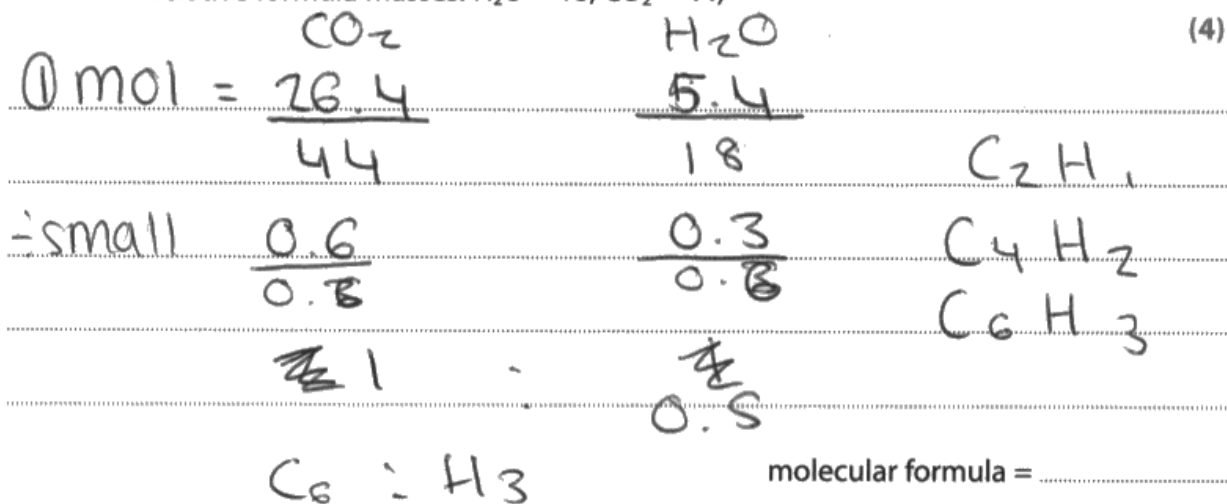 CO₂ H₂O (4)
① mol = 26.4 5.4
44 18 C₂H₁
÷ small 0.6 0.3 C₄H₂
0. 0. C₆H₃
1 :
0.5
C₆ : H₃ molecular formula = ....................